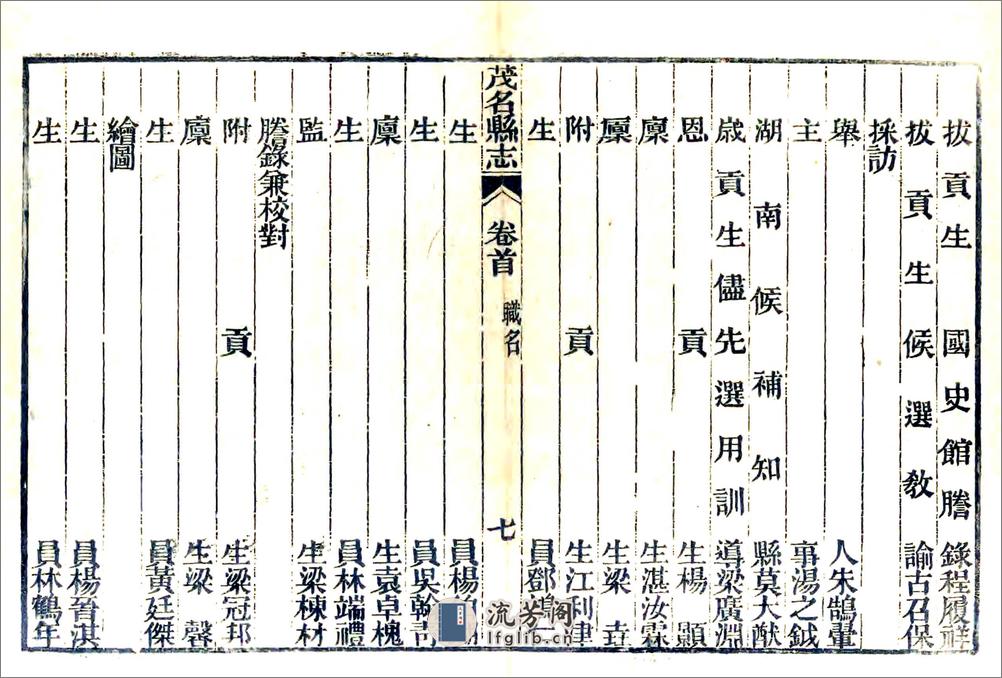 拔貢生國史館謄錄程履祥
拔貢生候選教諭古召保
採訪
舉人朱鵠翬
主事湯之鉞
湖南候補知縣莫大猷
歲貢生儘先選用訓導梁廣淵
恩貢生楊顯
廩生湛汝霖
廩生梁㙷
附貢生江利津
生員鄧
茂名縣志
卷首
職名
七
生員楊
生員吳翰
廩生袁卓槐
生員林端禮
監生梁棟材
謄錄兼校對
附貢生梁冠邦
廩生梁聲
生員黃廷傑
繪圖
生員楊晉淇
生員林鶴年
流芳閣
lfglib.cn